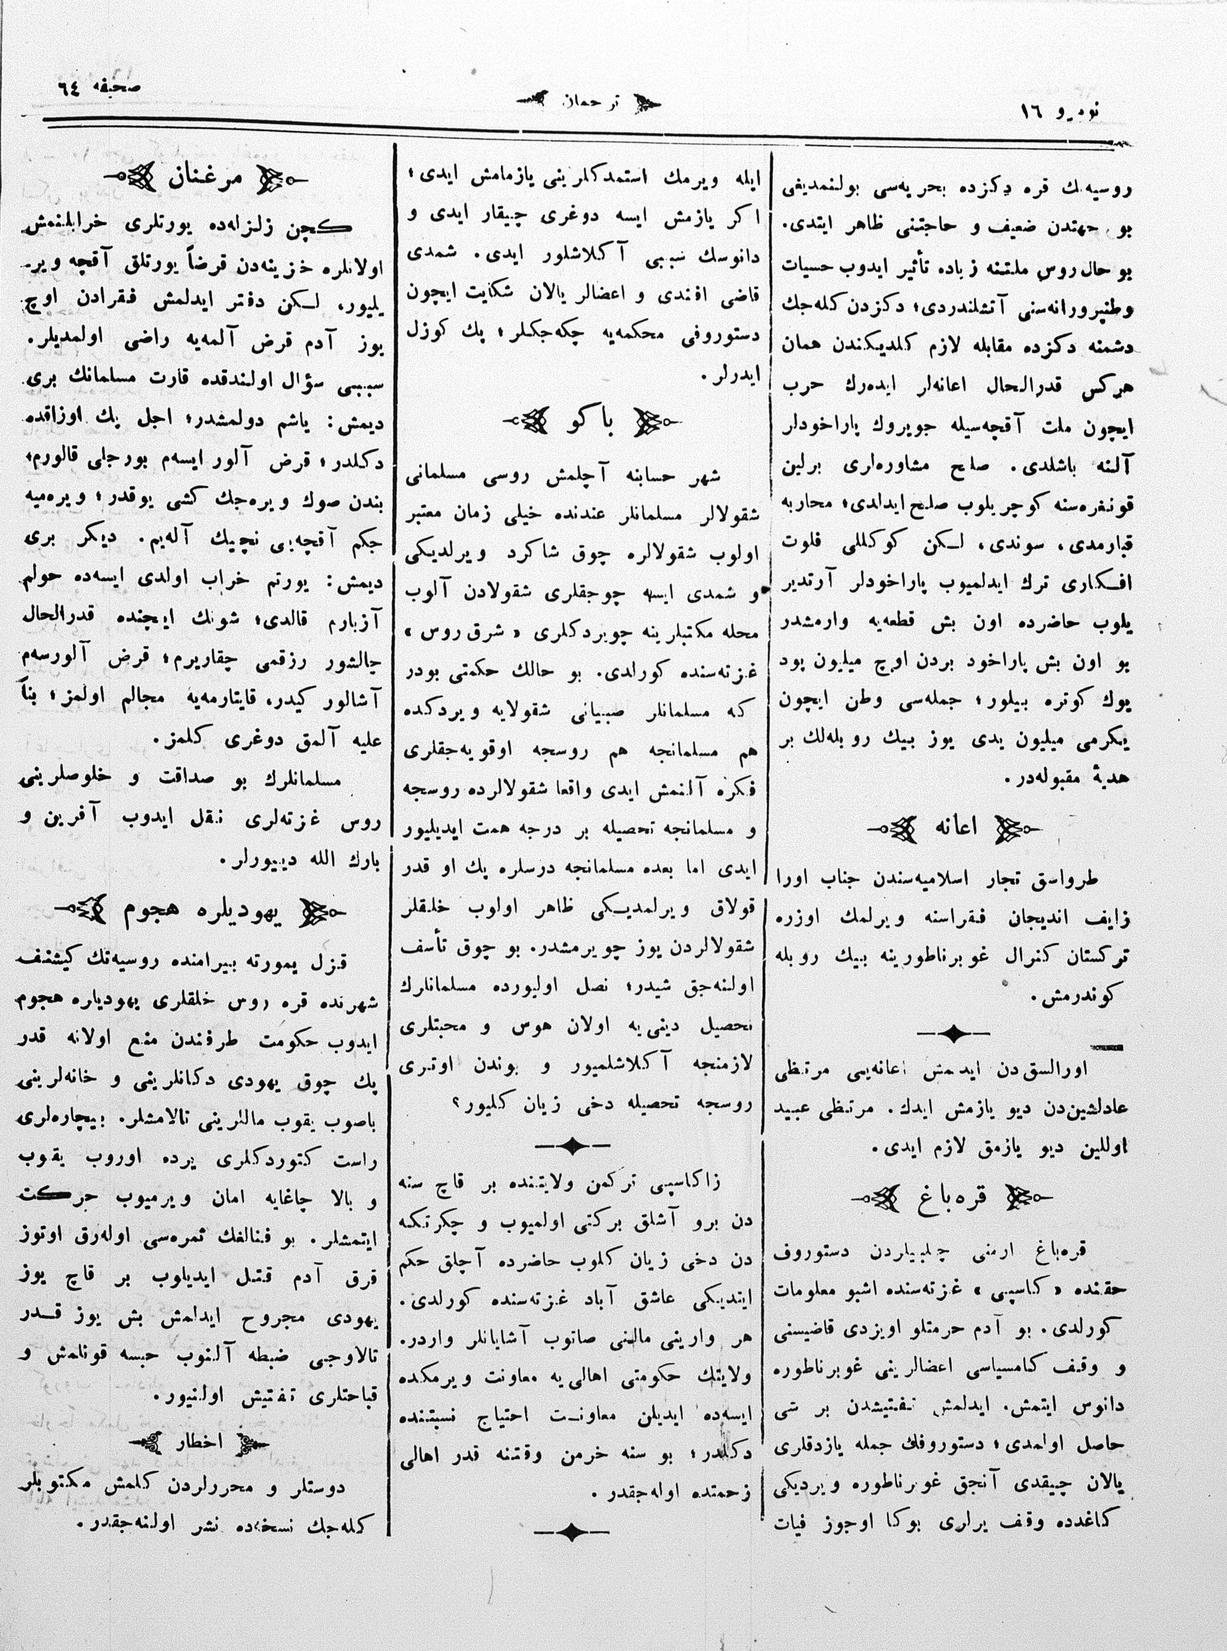 نومرو ١٦
ترجمان
صحیفه ٦٤
روسیه‌نك قره دكزده بحریه‌سی بولنمدیغی
بو جهتدن ضعیف و حاجتنی ظاهر ایتدی.
بو حال روس ملتنه زیاده تأثیر ایدوب حسیات
وطنپرورانه‌سنی آتشلندردی؛ دكزدن كله‌جك
دشمنه دكزده مقابله لازم كلدیكندن همان
هركس قدرالحال اعانه‌لر ایده‌رك حرب
ایچون ملت آقچه‌سیله جویروك پاراخودلر
آلنه باشلدی. صلح مشاوره‌لری برلین
قونغره‌سنه كوچریلوب صلح ایدلدی؛ محاربه
قبارمدی، سوندی، لكن كوكللی فلوت
افكاری ترك ایدلمیوب پاراخودلر آرتدیر
یلوب حاضرده اون بش قطعه‌یه وارمشدر
بو اون بش پاراخود بردن اوچ میلیون پود
یوك كوتره بیلور؛ جمله‌سی وطن ایچون
یكرمی میلیون یدی یوز بیك روبله‌لك بر
هدیهٔ مقبوله‌در.
اعانه
طرواسق تجار اسلامیه‌سندن جناب اورا
زایف اندیجان فقراسنه ویرلمك اوزره
تركستان كنرال غوبرناطورینه بیك روبله
كوندرمش.
اورالسق‌دن ایدلمش اعانه‌یی مرتظی
عادلشین‌دن دیو یازمش ایدك. مرتظی عبید
اوللین دیو یازمق لازم ایدی.
قره‌باغ
قره‌باغ ارمنی چلبیلردن دستوروف
حقنده «كاسپی» غزته‌سنده اشبو معلومات
كورلدی. بو آدم حرمتلو اویزدی قاضیسنی
و وقف كامسیاسی اعضالرینی غوبرناطوره
دانوس ایتمش. ایدلمش تفتیشدن بر شی
حاصل اولمدی؛ دستوروفك جمله یازدقلری
یالان چیقدی آنجق غوبرناطوره ویردیكی
كاغدده وقف یرلری بوكا اوجوز فیات
ایله ویرمك استمدكلرینی یازمامش ایدی؛
اكر یازمش ایسه دوغری چیقار ایدی و
دانوسك سببی آكلاشلور ایدی. شمدی
قاضی افندی و اعضالر یالان شكایت ایچون
دستوروفی محكمه‌یه چكه‌جكلر؛ پك كوزل
ایدرلر.
باكو
شهر حسابنه آچلمش روسی مسلمانی
شقولالر مسلمانلر عندنده خیلی زمان معتبر
اولوب شقولالره چوق شاكرد ویرلدیكی
و شمدی ایسه چوجقلری شقولادن آلوب
محله مكتبلرینه چویردكلری «شرق روس»
غزته‌سنده كورلدی. بو حالك حكمتی بودر
كه مسلمانلر صبیانی شقولایه ویردكده
هم مسلمانجه هم روسجه اوقویه‌جقلری
فكره آلنمش ایدی واقعا شقولالرده روسجه
و مسلمانجه تحصیله بر درجه همت ایدیلیور
ایدی اما بعده مسلمانجه درسلره پك او قدر
قولاق ویرلمدیكی ظاهر اولوب خلقلر
شقولالردن یوز چویرمشدر. بو چوق تأسف
اولنه‌جق شیدر؛ نصل اولیورده مسلمانلرك
تحصیل دینی‌یه اولان هوس و محبتلری
لازمنجه آكلاشلمیور و بوندن اوتری
روسجه تحصیله دخی زیان كلیور؟
زاكاسپی تركمن ولایتنده بر قاچ سنه
دن برو آشلق بركتی اولمیوب و چكرتكه
دن دخی زیان كلوب حاضرده آچلق حكم
ایتدیكی عاشق آباد غزته‌سنده كورلدی.
هر وارینی مالینی صاتوب آشایانلر واردر.
ولایتك حكومتی اهالی‌یه معاونت ویرمكده
ایسه‌ده ایدیلن معاونت احتیاج نسبتنده
دكلدر؛ بو سنه خرمن وقتنه قدر اهالی
زحمتده اوله‌جقدر.
مرغنان
كچن زلزله‌ده یورتلری خرابلنمش
اولانلره خزینه‌دن قرضاً یورتلق آقچه ویر-
یلیور، لكن دفتر ایدلمش فقرادن اوچ
یوز آدم قرض آلمه‌یه راضی اولمدیلر.
سببی سؤال اولندقده قارت مسلمانك بری
دیمش: یاشم دولمشدر؛ اجل پك اوزاقده
دكلدر؛ قرض آلور ایسه‌م بورجلی قالورم؛
بندن صوك ویره‌جك كشی یوقدر؛ ویره‌میه
جكم آقچه‌یی نچیك آله‌یم. دیكر بری
دیمش: یورتم خراب اولدی ایسه‌ده حولم
آزبارم قالدی؛ شونك ایچنده قدرالحال
چالشور رزقمی چقاریرم؛ قرض آلورسه‌م
آشالور كیدر، قایتارمه‌یه مجالم اولمز؛ بناً
علیه آلمق دوغری كلمز.
مسلمانلرك بو صداقت و خلوصلرینی
روس غزته‌لری نقل ایدوب آفرین و
بارك الله دییورلر.
یهودیلره هجوم
قزل یمورته بیرامنده روسیه‌نك كیشنف
شهرنده قره روس خلقلری یهودیلره هجوم
ایدوب حكومت طرفندن منع اولانه قدر
پك چوق یهودی دكانلرینی و خانه‌لرینی
باصوب یقوب مالنرینی تالامشلر. بیچاره‌لری
راست كتوردكلری یرده اوروب یقوب
و بالا چاغایه امان ویرمیوب حركت
ایتمشلر. بو فنالغك ثمره‌سی اوله‌رق اوتوز
قرق آدم قتل ایدیلوب بر قاچ یوز
یهودی مجروح ایدلمش بش یوز قدر
تالاوجی ضبطه آلنوب حبسه قونلمش و
قباحتلری تفتیش اولنیور.
اخطار
دوستلر و محررلردن كلمش مكتوبلر
كله‌جك نسخه‌ده نشر اولنه‌جقدر.